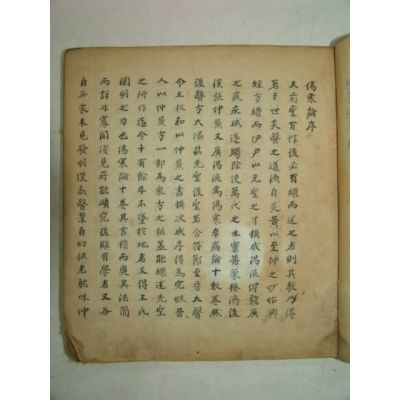 傷寒論序
夫前聖有作後必有繼而述之者則其教乃得
著于世矣醫之道源自炎黃以至神之妙始興
經方繼而伊尹以元聖之才撰成湯液俾黎庶
之疾疢咸遂蠲除使萬代之生靈普蒙拯濟後
漢張仲景又廣湯液為傷寒卒病論十數卷然
後醫方大備茲先聖後聖若合符節至晉太醫
令王叔和以仲景之書撰次成序得為完帙昔
人以仲景方一部為衆方之祖盖能繼述先聖
之所作迄今千有餘年不墜於地者又得王氏
闡明之力也傷寒論十卷其言精而奧其法簡
而詳非寡聞淺見所能賾究後雖有學者又各
自名家未見發明僕忝醫業自幼徂老耽味仲